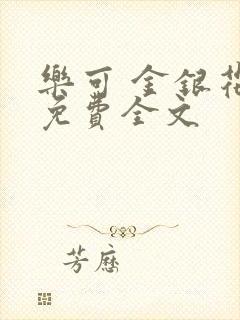 樂可 金銀花
免費全文
芳歷